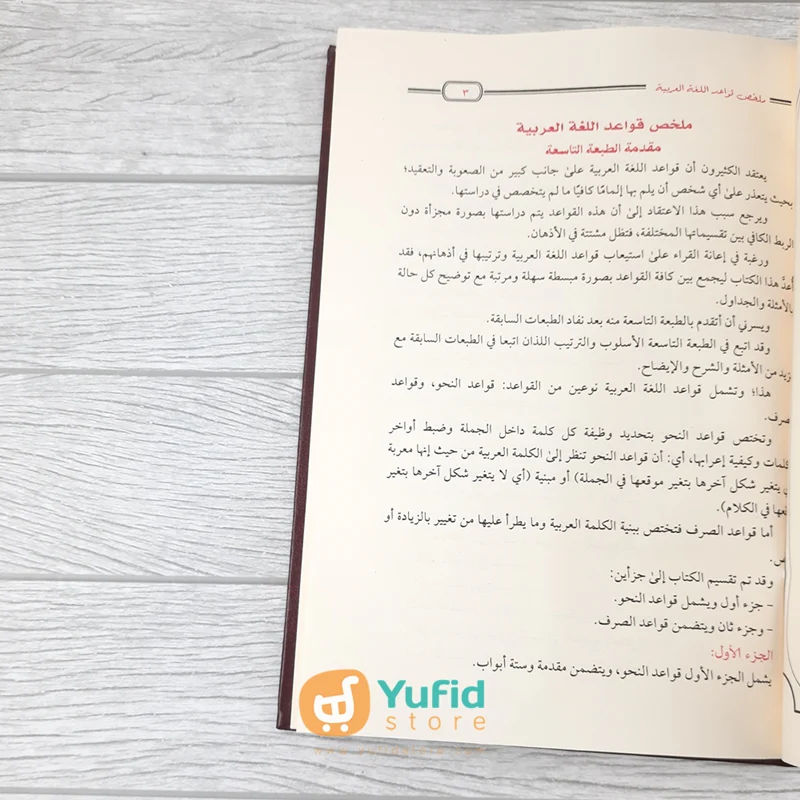 ملخص قواعد اللغة العربية
٣
ملخص قواعد اللغة العربية
مقدمة الطبعة التاسعة
يعتقد الكثيرون أن قواعد اللغة العربية علىٰ جانب كبير من الصعوبة والتعقيد؛
بحيث يتعذر علىٰ أي شخص أن يلم بها إلمامًا كافيًا ما لم يتخصص في دراستها.
ويرجع سبب هذا الاعتقاد إلىٰ أن هذه القواعد يتم دراستها بصورة مجزأة دون
الربط الكافي بين تقسيماتها المختلفة، فتظل مشتتة في الأذهان.
ورغبة في إعانة القراء علىٰ استيعاب قواعد اللغة العربية وترتيبها في أذهانهم، فقد
أعدَّ هذا الكتاب ليجمع بين كافة القواعد بصورة مبسطة سهلة ومرتبة مع توضيح كل حالة
بالأمثلة والجداول.
ويسرني أن أتقدم بالطبعة التاسعة منه بعد نفاد الطبعات السابقة.
وقد اتبع في الطبعة التاسعة الأسلوب والترتيب اللذان اتبعا في الطبعات السابقة مع
من الأمثلة والشرح والإيضاح.
هذا؛ وتشمل قواعد اللغة العربية نوعين من القواعد: قواعد النحو، وقواعد
صرف.
وتختص قواعد النحو بتحديد وظيفة كل كلمة داخل الجملة وضبط أواخر
كلمات وكيفية إعرابها، أي: أن قواعد النحو تنظر إلىٰ الكلمة العربية من حيث إنها معربة
يتغير شكل آخرها بتغير موقعها في الجملة) أو مبنية (أي لا يتغير شكل آخرها بتغير
في الكلام).
أما قواعد الصرف فتختص ببنية الكلمة العربية وما يطرأ عليها من تغيير بالزيادة أو
وقد تم تقسيم الكتاب إلىٰ جزأين:
- جزء أول ويشمل قواعد النحو.
- وجزء ثان ويتضمن قواعد الصرف.
الجزء الأول:
يشمل الجزء الأول قواعد النحو، ويتضمن مقدمة وستة أبواب.
Yufid
store